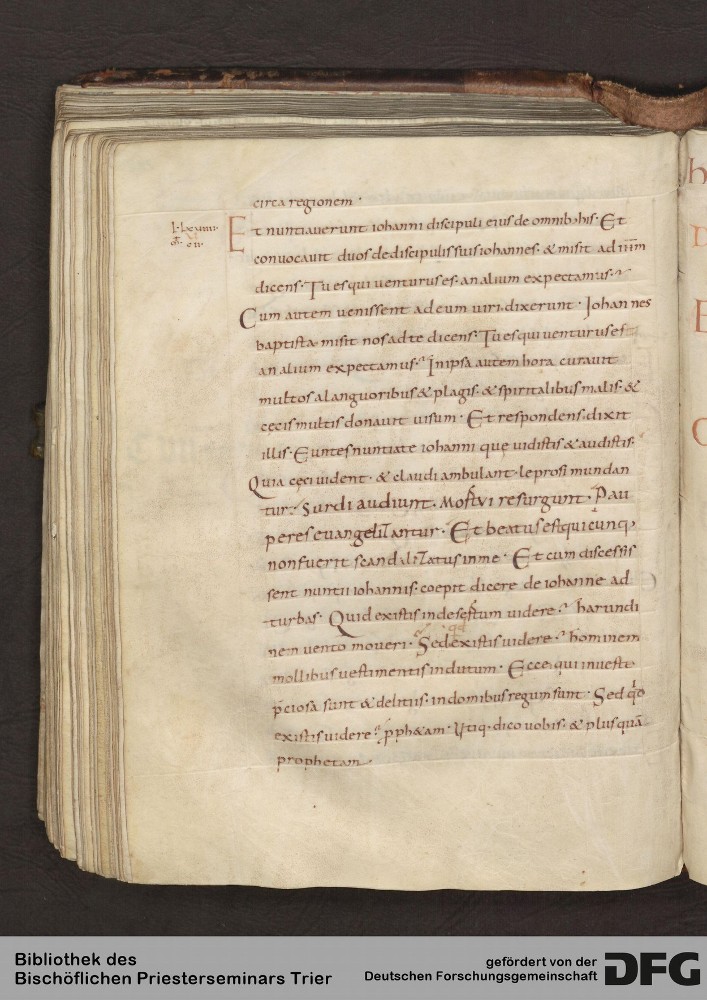 circa regionem ·
Et nuntiauerunt iohanni discipuli eius de omnib; his · Et
conuocauit duos de discipulis suis iohannes · & misit ad
dicens · Tu es qui uenturus es · an alium expectamus ·
Cum autem uenissent ad eum uiri · dixerunt · Iohannes
baptista misit nos ad te dicens · Tu es qui uenturus es ·
an alium expectamus · In ipsa autem hora curauit
multos a languoribus & plagis · & spiritalibus malis · &
cecis multis donauit uisum · Et respondens · dixit
illis · Euntes nuntiate iohanni quę uidistis & audistis ·
Quia cęci uident · & claudi ambulant · leprosi mundan
tur · Surdi audiunt · Mortui resurgunt · Pau
peres euangelizantur · Et beatus est quicunq;
non fuerit scandalizatus in me · Et cum discessis
sent nuntii iohannis · coepit dicere de iohanne ad
turbas · Quid existis in desertum uidere · harundi
nem uento moueri · Sed existis uidere · hominem
mollibus uestimentis indutum · Ecce qui in ueste
p̄ciosa sunt & delitiis · in domibus regum sunt · Sed qd
existis uidere · p̄ph&am · Utiq; dico uobis · & plus quā
prophetam ·
Bibliothek des
Bischöflichen Priesterseminars Trier
gefördert von der
Deutschen Forschungsgemeinschaft
DFG